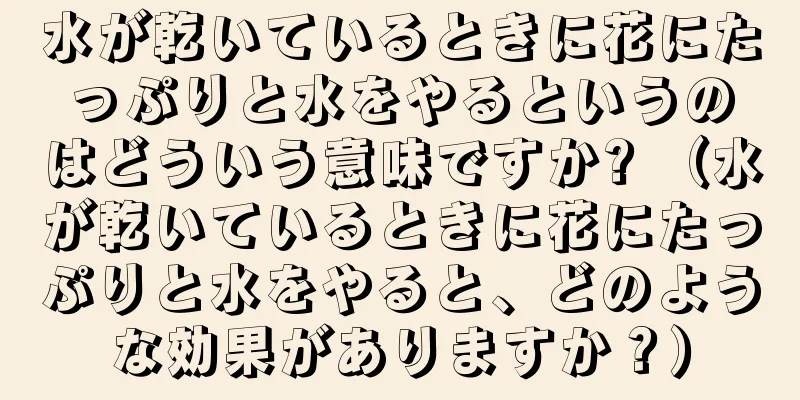 水が乾いているときに花にた
っぷりと水をやるというの
はどういう意味ですか？（水
が乾いているときに花にたっ
ぷりと水をやると、どのよう
な効果がありますか？）